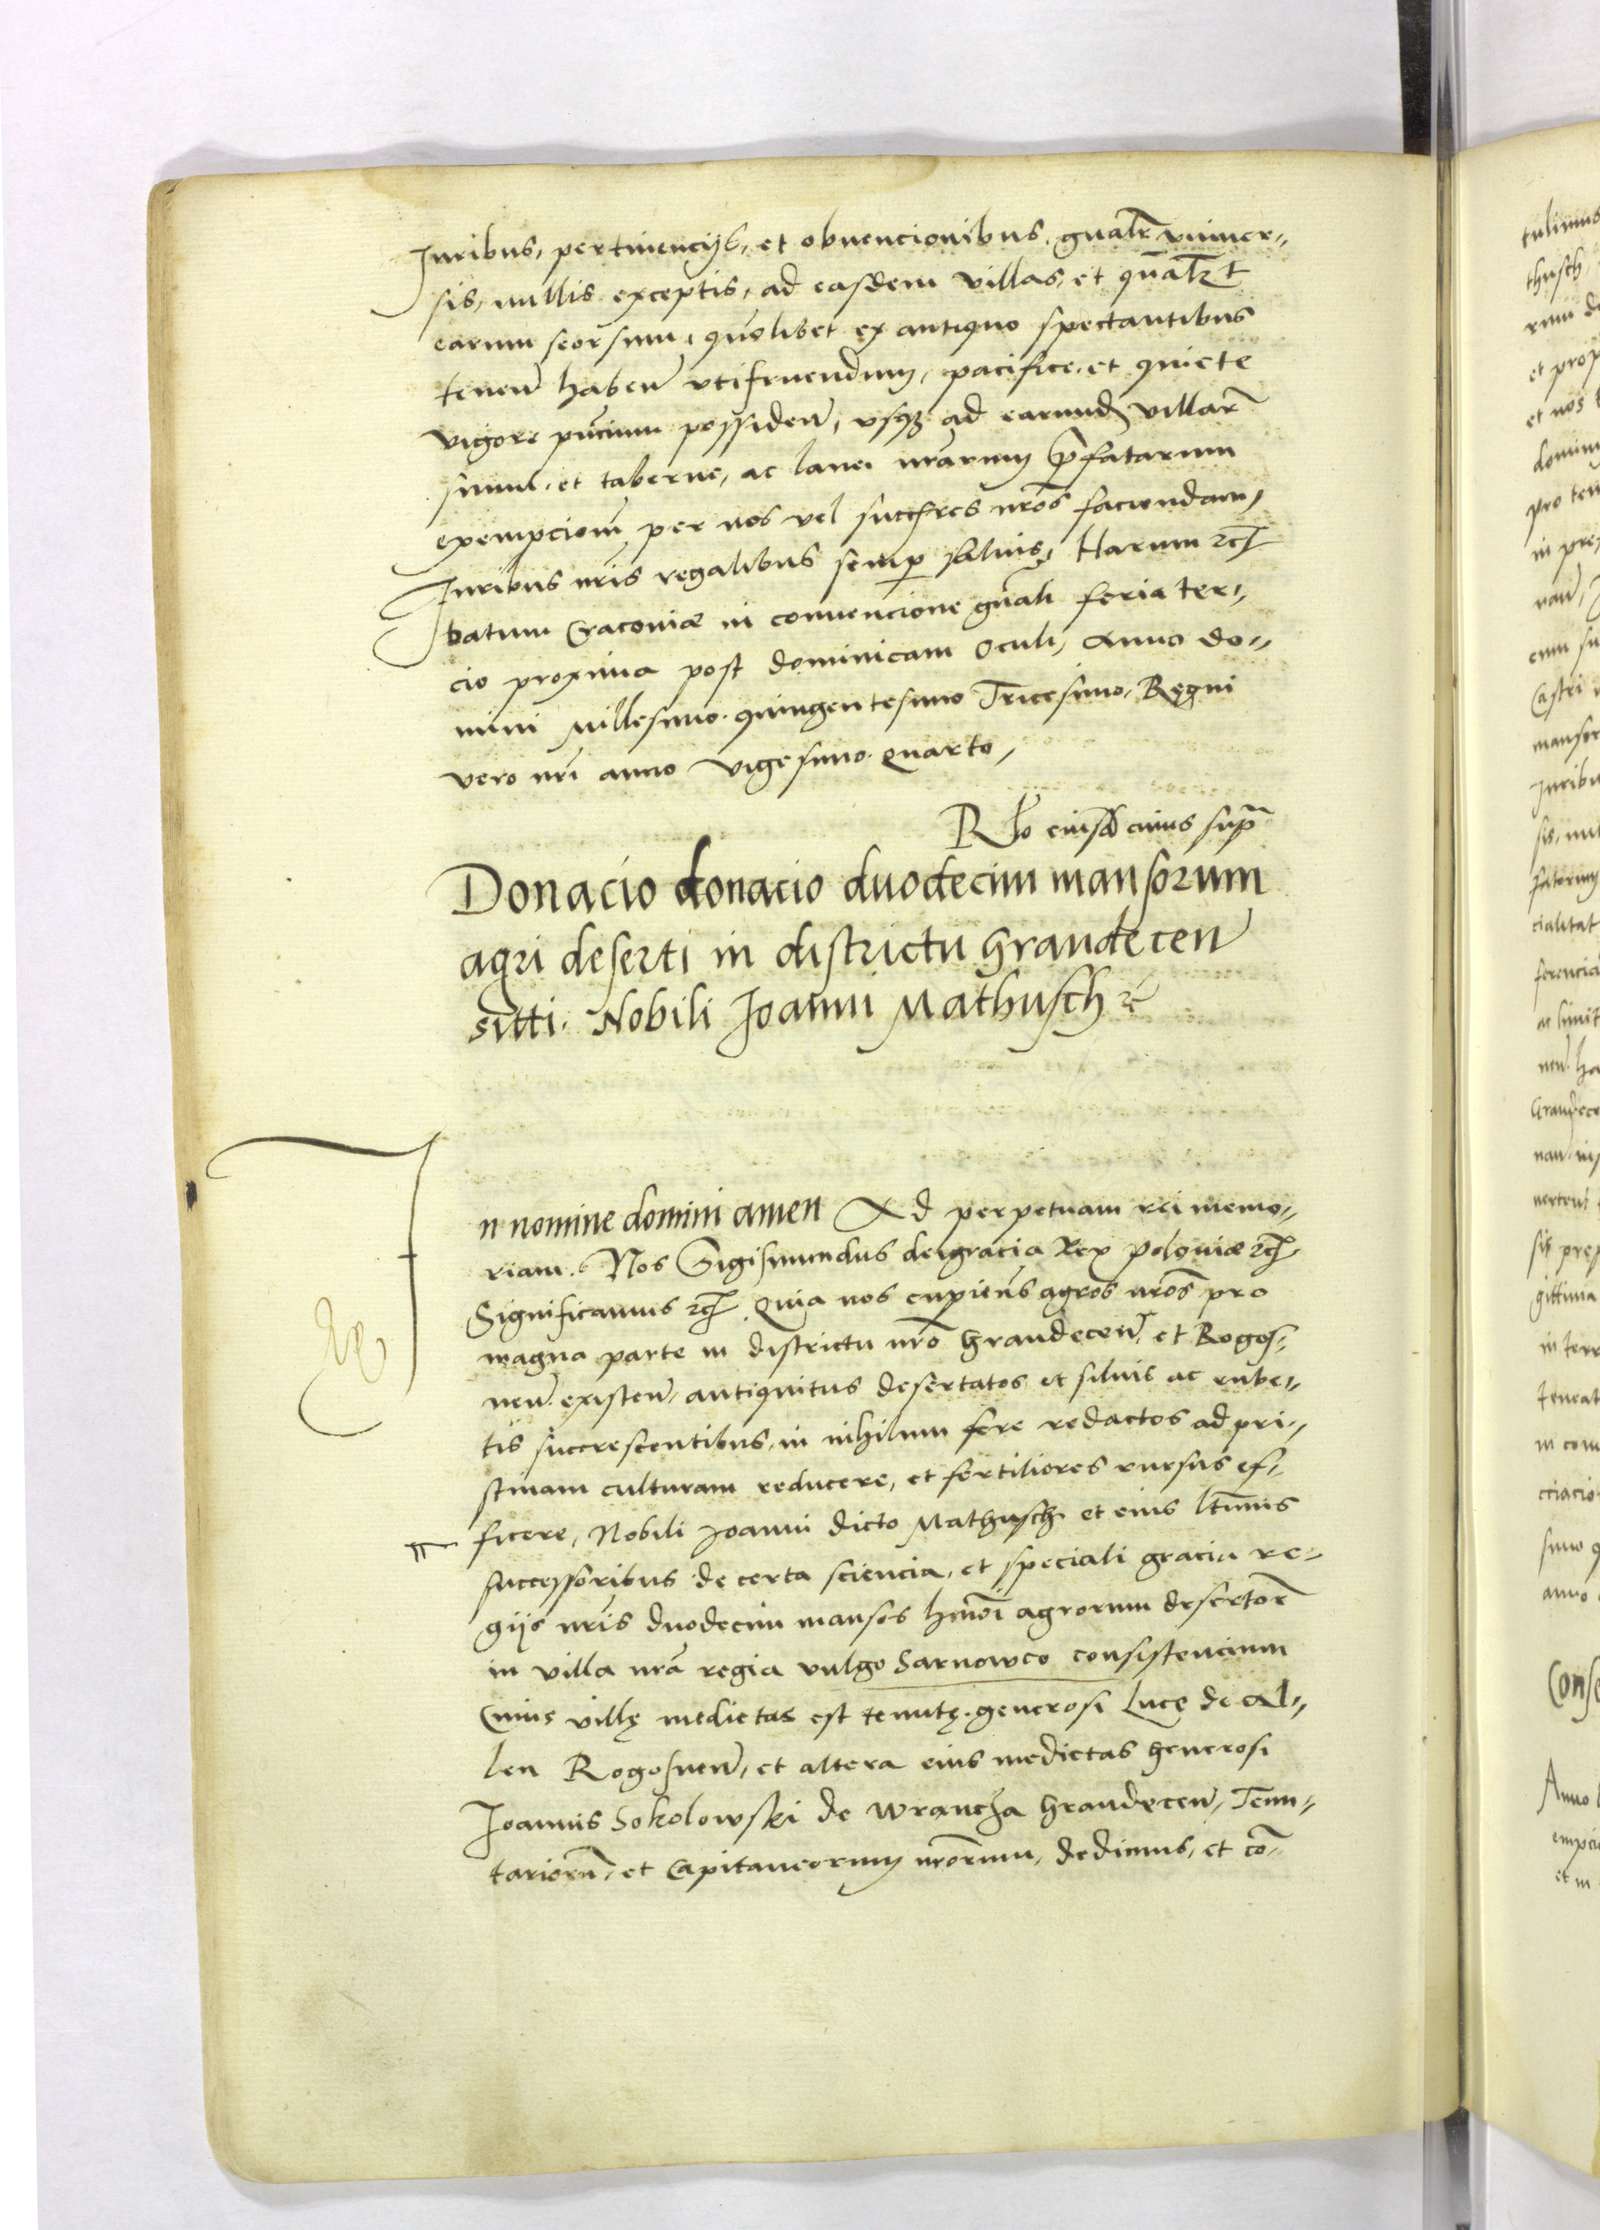 Juribus, pertinencijs, et obuencionibus, gnalr vniuer-
sis, nullis exceptis, ad easdem villas, et qualrt
earum seorsum, quolibet ex antiquo spectantibus
tenen haben vtifruendum, pacifice, et quiete
vigore pncium possiden, vsq ad earund villar
simul et taberne, ac lanei nrarum pfatarum
exempcionem per nos vel succres nros faciendam,
Juribus nris regalibus semp saluis, Harum etc
Datum Cracouiæ in conuencione gnali feria ter-
cio proxima post dominicam Oculi, Anno do-
mini Millesimo quingentesimo Tricesimo, Regni
vero nri anno vigesimo quarto,
Rlo eiusd cuius supra
Donacio donacio duodecim mansorum
agri deserti in districtu Graudecen
sitti Nobili Joanni Mathusch etc
In nomine domini amen Ad perpetuam rei memo-
riam. Nos Sigismundus dei gracia Rex Poloniæ etc
Significamus etc Quia nos cupiens agros nros pro
magna parte in districtu nro Graudecen et Rogos-
nen existen antiquitus desertatos et siluis ac rube-
tis succrescentibus in nihilum fere redactos ad pri-
stinam culturam reducere, et fertiliores rursus ef-
ficere, Nobili Joanni dicto Mathusch et eius ltimis
successoribus de certa sciencia, et speciali gracia re-
gijs nris duodecim mansos hmoi agrorum desertor
in villa nra regia vulgo Sarnowco consistencium
Cuius villę medietas est tenutę generosi Lucę de Al-
len Rogosnen, et altera eius medietas Generosi
Joannis Sokolowski de Wrancza Graudecen, Tenu-
tarior, et Capitaneorum nrorum, dedimus, et co-